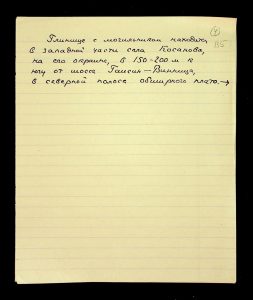 Глинище с могильником находится
в западной части села Косанова,
на его окраине, в 150-200 м к
югу от шоссе Гайсин–Винница,
в северной полосе обширного плато.→